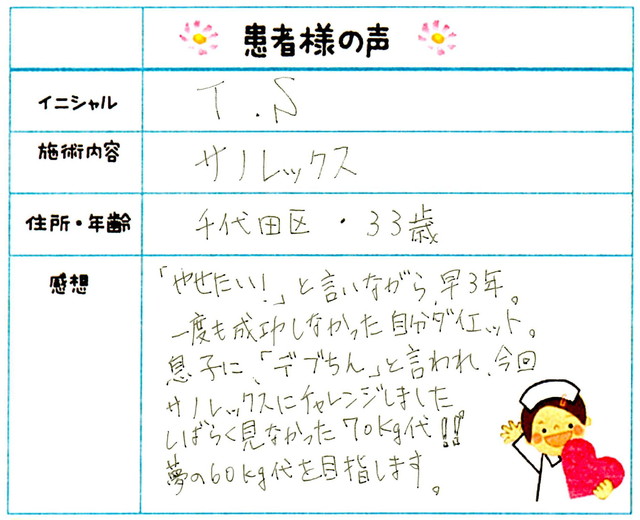 患者様の声
イニシャル T.S
施術内容 サノレックス
住所・年齢 千代田区・33歳
感想
「やせたい!」と言いながら、早3年。
一度も成功しなかった自分ダイエット。
息子に、「デブちん」と言われ、今回
サノレックスにチャレンジしました
しばらく見なかった70kg代!!
夢の60kg代を目指します。